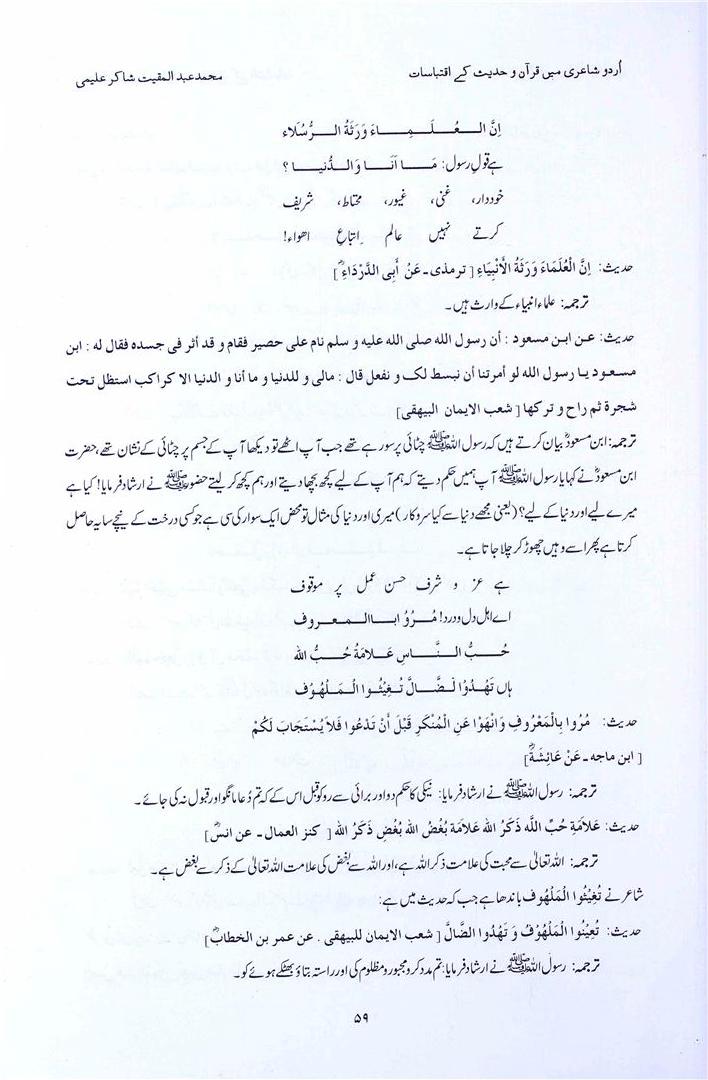 اُردو شاعری میں قرآن و حدیث کے اقتباسات
محمد عبد المقیت شاکر علیمی
اِنَّ الـعُـلَـمـاءَ وَرَثَةُ الـرُّسُلاء
ہے قولِ رسول: مَـا اَنَـا وَالـدُّنـیـا ؟
خوددار، غنی، غیور، محتاط، شریف
کرتے نہیں عالم اِتباعِ اھواء!
حدیث: اِنَّ الْعُلَمَاءَ وَرَثَةُ الْأَنْبِيَاءِ [ترمذی۔عَنْ أَبِی الدَّرْدَاءِؓ]
ترجمہ: علماء انبیاء کے وارث ہیں۔
حدیث: عـن ابـن مسعود : أن رسول الله صلى الله عليه و سلم نام على حصير فقام و قد أثر فى جسده فقال له : ابن
مسعود يـا رسول الله لو أمرتنا أن نبسط لک و نفعل قال : مالى و للدنيا و ما أنا و الدنيا الا كراكب استظل تحت
شجرة ثم راح و تركها [شعب الايمان البيهقى]
ترجمہ: ابن مسعودؓ بیان کرتے ہیں کہ رسول اللہﷺ چٹائی پر سو رہے تھے جب آپ اٹھے تو دیکھا آپ کے جسم پر چٹائی کے نشان تھے، حضرت
ابن مسعودؓ نے کہا یا رسول اللہﷺ آپ ہمیں حکم دیتے کہ ہم آپ کے لیے کچھ بچھا دیتے اور ہم کچھ کر لیتے حضورﷺ نے ارشاد فرمایا! کیا ہے
میرے لیے اور دنیا کے لیے؟ (یعنی مجھے دنیا سے کیا سروکار) میری اور دنیا کی مثال تو محض ایک سوار کی سی ہے جو کسی درخت کے نیچے سایہ حاصل
کرتا ہے پھر اسے وہیں چھوڑ کر چلا جاتا ہے۔
ہے عز و شرف حسن عمل پر موقوف
اے اہل دل و درد! مُـرُوْ ابـالـمـعـروف
حُـبُّ الـنَّـاسِ عَـلامَةُ حُـبُّ الله
ہاں تَهْدُوْا لَضَّالَّ تُـغِيْثُـوا الْـمَلْهُوْف
حدیث: مُرُوا بِالْمَعْرُوفِ وَانْهَوْا عَنِ الْمُنْكَرِ قَبْلَ أَنْ تَدْعُوا فَلاَ يُسْتَجَابَ لَكُمْ
[ابن ماجه۔عَنْ عَائِشَةَؓ]
ترجمہ: رسول اللہﷺ نے ارشاد فرمایا: نیکی کا حکم دو اور برائی سے روکو قبل اس کے کہ تم دُعا مانگو اور قبول نہ کی جائے۔
حدیث: عَلاَمَةِ حُبِّ اللَّه ذَكَرُ الله عَلاَمَة بُغْضُ الله بُغْضِ ذَكَرُ الله [کنز العمال۔عن انسؓ]
ترجمہ: اللہ تعالیٰ سے محبت کی علامت ذکر اللہ ہے، اور اللہ سے بغض کی علامت اللہ تعالیٰ کے ذکر سے بغض ہے۔
شاعر نے تُغِيْثُوا الْمَلْهُوف باندھا ہے جب کہ حدیث میں ہے:
حدیث: تُعِيْنُوا الْمَلْهُوْفَ وَ تَهْدُوا الضَّالَّ [شعب الايمان للبيهقى . عن عمر بن الخطابؓ]
ترجمہ: رسول اللہﷺ نے ارشاد فرمایا: تم مدد کرو مجبور و مظلوم کی اور راستہ بتاؤ بھٹکے ہوئے کو۔
۵۹